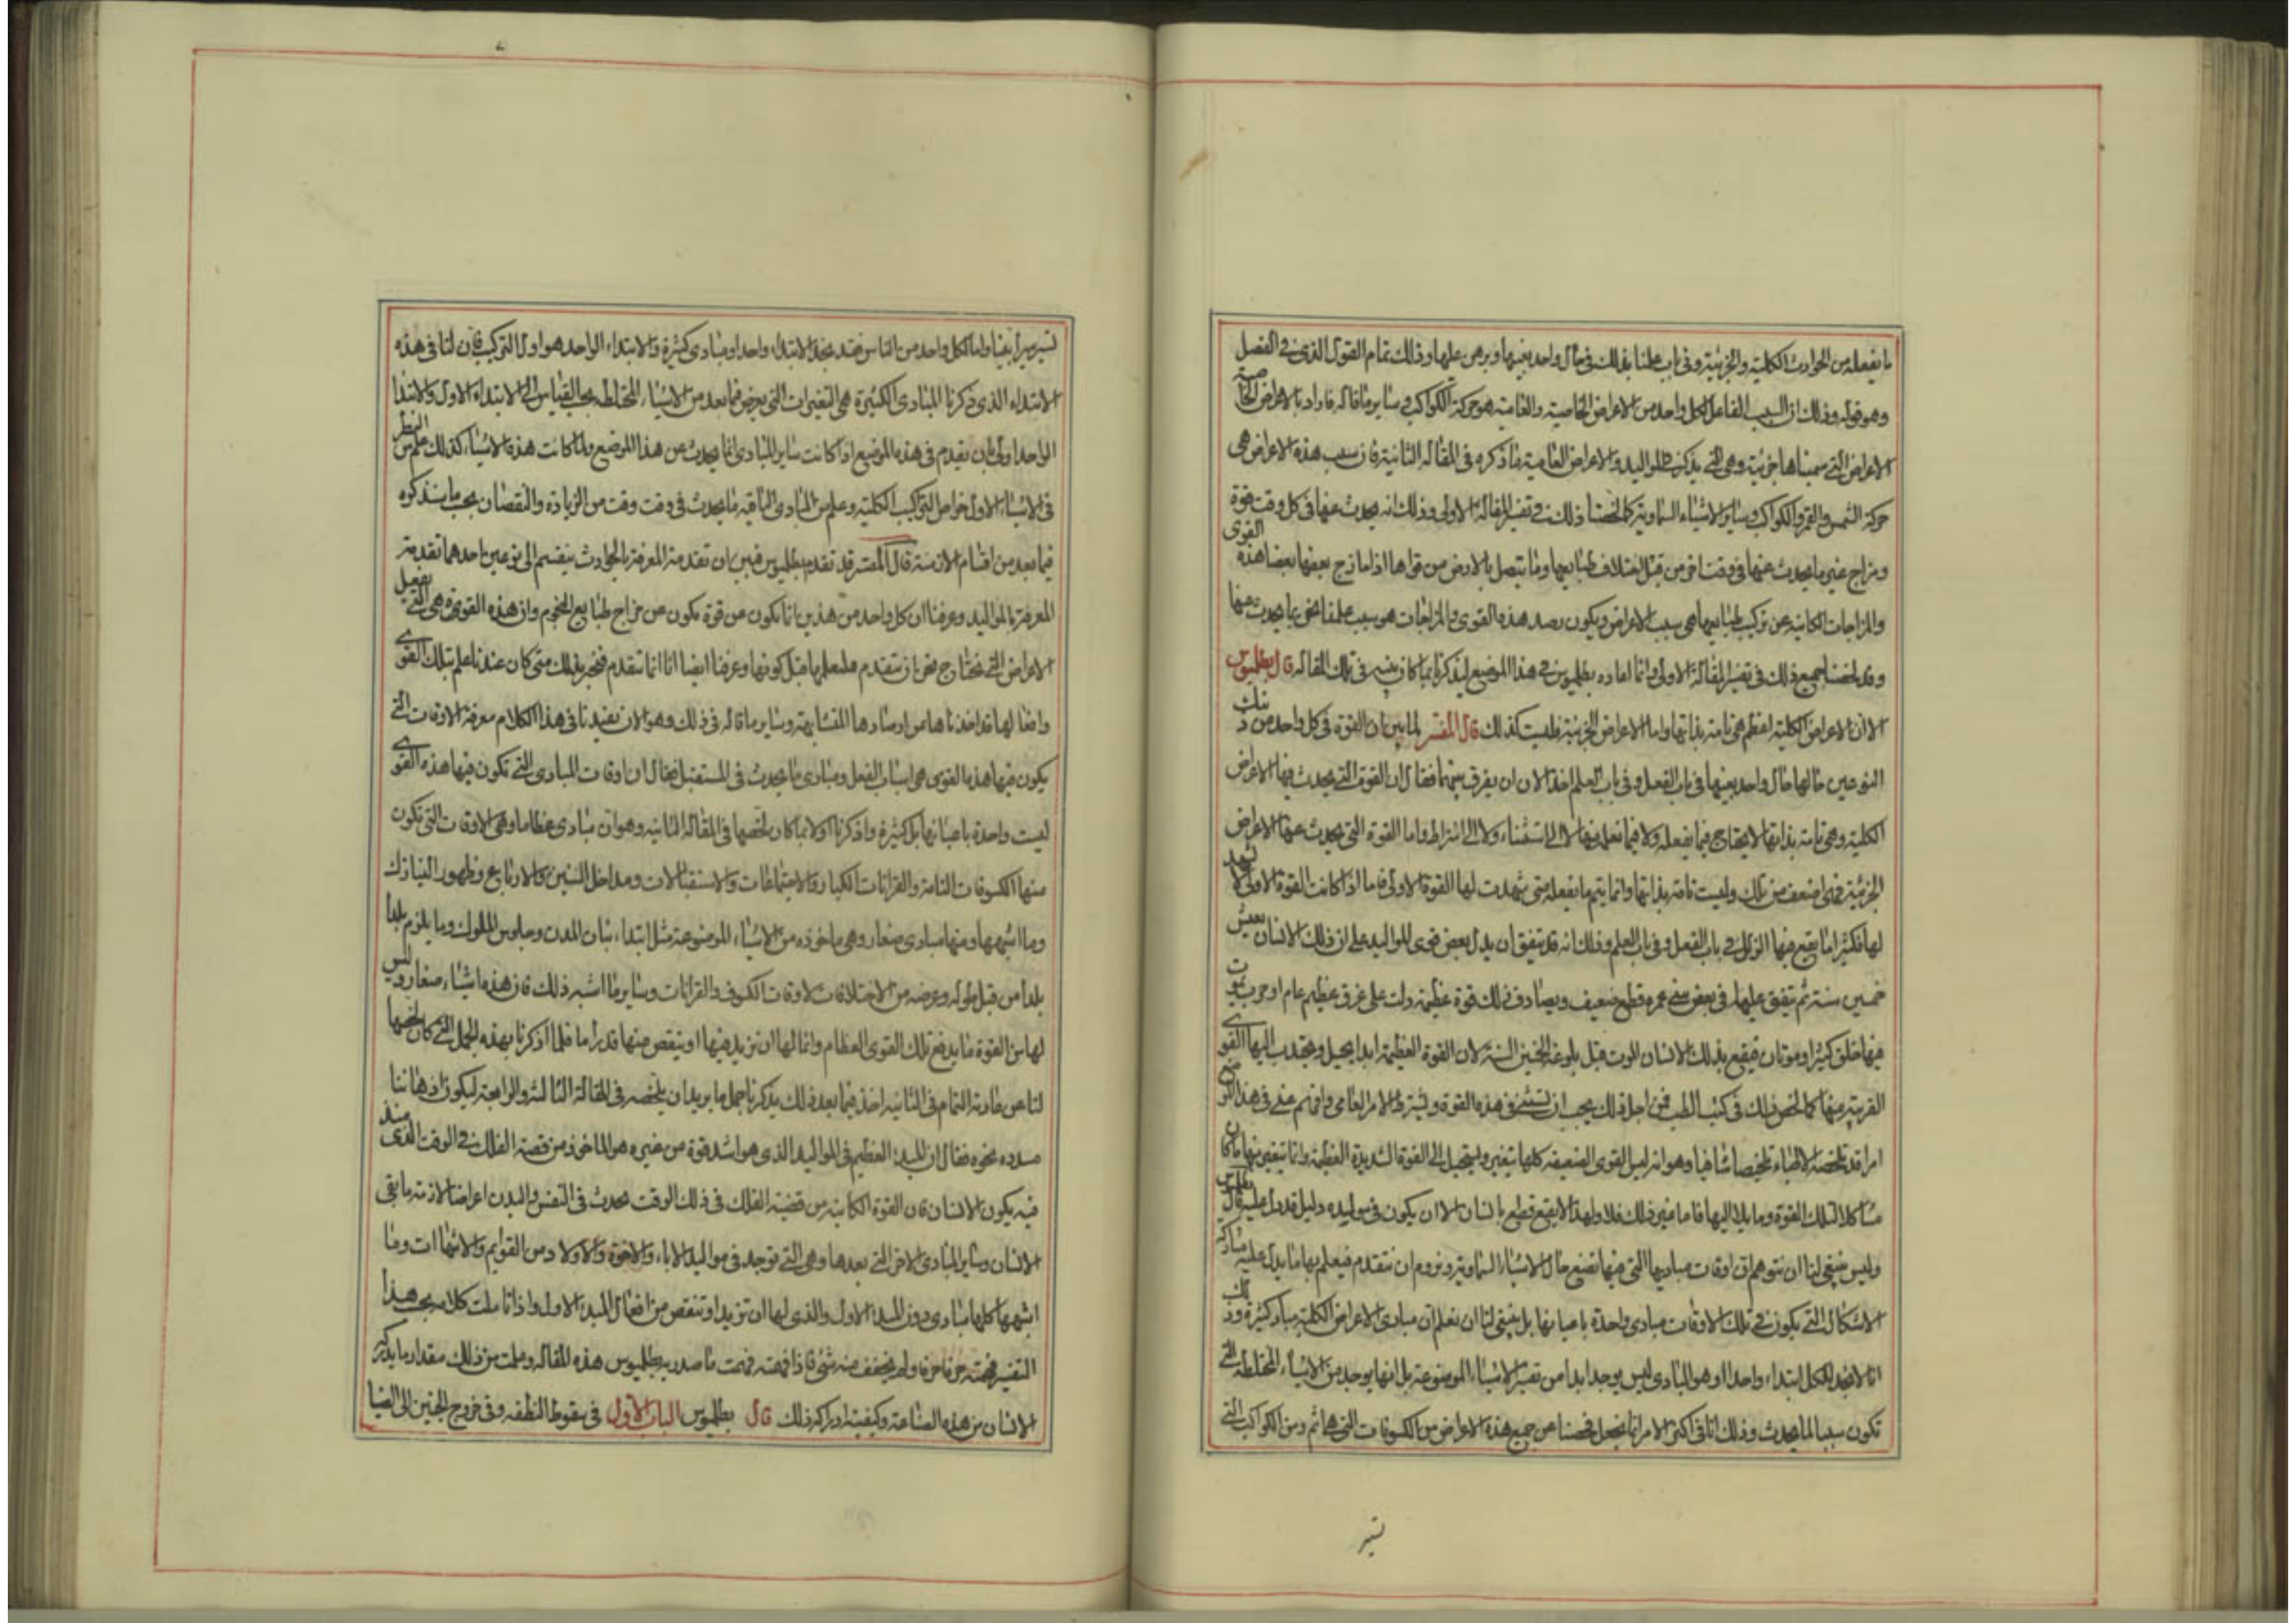 ما يفعله من الحوادث الكلية والجزئية وفى باب علمنا بذلك فى حال واحد بعينها ويرهن عليها وذلك تمام القول الذى فى الفصل
وهو قوله وذلك ان السبب الفاعل لكل واحد من الاعراض الخاصية والعامية هو حركة الكواكب وساير ما قاله فاراد بالاعراض الخاصية
الاعراض التى سميناها جزئية وهى التى يذكرها للمواليد والاعراض العامية ما ذكره فى المقالة الثانية فان سبب هذه الاعراض هى
حركة الشمس والقمر والكواكب وساير الاشياء السماوية كما لخصنا ذلك فى تفسير المقالة الاولى وذلك انه يحدث عنها فى كل وقت قوة
ومزاج غير ما يحدث عنها فى وقت اخر من قبل اختلاف طبايعها وما يتصل بالارض من قواها اذا مازج بعضها بعضا هذه القوى
والمزاجات الكاينة عن تركيب طبايعها هى سبب الاعراض ويكون رصد هذه القوى والمزاجات هو سبب علمنا نحن بما يحدث عنها
وقد لخصنا جميع ذلك فى تفسير المقالة الاولى وانما اعاده بطلميوس فى هذا الموضع ليذكرنا بما كان بينه فى تلك المقالة قال بطلميوس
الا ان الاعراض الكلية اعظم هى تامة بذاتها واما الاعراض الجزئية فليست كذلك قال المفسر لما بين ان القوة فى كل واحد من ذينك
النوعين حالها حال واحد بعينها فى باب الفعل وفى باب العلم اخذ الان ان يفرق بينهما فقال ان القوة التى يحدث فيها الاعراض
الكلية وهى تامة بذاتها لا يحتاج فيما يفعله ولا فيما نعلم منها لا الى استثناء ولا الى اشتراط واما القوة التى يحدث عنها الاعراض
الجزئية فهى اضعف من تلك وليست تامة بذاتها وانما يتم ما يفعله متى شهدت لها القوة الاولى فاما اذا كانت القوة الاولى لا تشهد
لها فكثيرا ما يقع فيها الزلل فى باب الفعل وفى باب العلم وذلك انه قد يتفق ان يدل بعض قوى المواليد على ان ذلك الانسان يعيش
خمسين سنة ثم يتفق عليها فى بعض سنى عمره قطع ضعيف ويصادف ذلك قوة عظيمة دلت على غرق عظيم عام او حرب يموت
فيها خلق كثير او موتان فيقع بذلك الانسان الموت قبل بلوغه الخمسين السنة لان القوة العظيمة ابدا يحيل ويجذب اليها القوى
القريبة منها كما لخص ذلك فى كتب الطب فمن اجل ذلك يجب ان نستثنى فى هذه القوة ونشترط الامر العامى وافهم عنى فى هذا
امرا قد لخصه الاطباء تلخيصا شافيا وهو انه ليس القوى الضعيفة كلها يتغير ويستحيل الى القوة الشديدة العظيمة وانما يتغير منها ما كان
مشاكلا لتلك القوة ومايلا اليها فاما غير ذلك فلا ولهذا لا يقع قطع بانسان الا ان يكون فى مواليده دليل قد دل عليه قال بطلميوس
وليس ينبغى لنا ان نتوهم ان اوقات مباديها التى منها نضع حال الاشياء السماوية ونروم ان نتقدم فيعلم بها ما يدل عليه مشاركة
الاشكال التى يكون فى تلك الاوقات مبادى واحدة باعيانها بل ينبغى لنا ان نعلم ان مبادى الاعراض الكلية مباد كثيرة وذلك
انا لا نجد للكل ابتداء واحدا وهو المبادى ليس يوجد ابدا من نفس الاشياء الموضوعة بل انها يوجد من الاشياء المختلطة التى
تكون سببا لما يحدث وذلك انا فى اكثر الامر انما نجعل فحصنا عن جميع هذه الاعراض من الكسوفات التى هى اتم ومن الكواكب التى
تسير
تسير مسيرا بينا واما لكل واحد من الناس فقد نجد الابتداء واحدا ومبادى كثيرة والابتداء الواحد هو اول التركيب فان لنا فى هذه
الابتداء الذى ذكرنا المبادى الكثيرة هى التغيرات التى يعرض فيما بعد من الاشياء المختلطة بحسب القياس الى الابتداء الاول والابتدا
الواحد اولى بان يقدم فى هذه الموضع اذ كانت ساير المبادى انما يحدث عن هذا الموضع ولما كانت هذه الاشياء كذلك علم من النظر
فى الاشياء الاول خواص التركيب الكلية وعلم من المبادى الباقية ما يحدث فى وقت وقت من الزيادة والنقصان بحسب ما سنذكره
فيما بعد من اقسام الازمنة قال المفسر قد تقدم بطلميوس فبين ان تقدمة المعرفة بالحوادث ينقسم الى نوعين احدهما تقدمة
المعرفة بالمواليد وعرفنا ان كل واحد من هذين انما يكون من قوة يكون من مزاج طبايع النجوم وان هذه القوة هى التى تفعل
الاعراض التى نحتاج نحن ان نتقدم فنعلمها قبل كونها وعرفنا ايضا انا انما نتقدم فنخبر بذلك متى كان عندنا علم بتلك القوى
وافعالها قد اخذناها من ارصادها المتشابهة وساير ما قاله فى ذلك وهو الان يفيدنا فى هذا الكلام معرفة الاوقات التى
يكون فيها هذه القوى هى اسباب الفعل ومبادى ما يحدث فى المستقبل فقال ان اوقات المبادى التى تكون فيها هذه القوى
ليست واحدة باعيانها بل كثيرة واذكرنا اولا بما كان لخصها فى المقالة الثانية وهو ان مبادى عظاما وهى الاوقات التى تكون
منها الكسوفات التامة والقرانات الكبار والاجتماعات والاستقبالات ومداخل السنين والارتابيع وظهور النيازك
وما اشبهها ومنها مبادى صغار وهى ماخوذة من الاشياء الموضوعة مثل ابتداء بنيان المدن وجلوس الملوك وما يلزم بلدا
بلدا من قبل طوله وعرضه من الاختلافات لاوقات الكسوف والقرانات وساير ما اشبه ذلك فان هذه اشياء صغار وليس
لها من القوة ما يدفع تلك القوى العظام وانما لها ان تزيد فيها او ينقص منها قدرا ما فلما اذكرنا بهذه الجمل التى كان لخصها
لنا عن عادته التمام فى الثانية اخذ فيما بعد ذلك يذكرنا جمل ما يريد ان يلخصه فى المقالة الثالثة والرابعة ليكون اذهاننا
مسدده نحوه فقال ان المبدء العظيم فى المواليد الذى هو اشد قوة من غيره هو الماخوذ من قصة الفلك فى الوقت الذى
فيه يكون الانسان فان القوة الكاينة من قضية الفلك فى ذلك الوقت يحدث فى النفس والبدن اعراضا لازمة ما بقى
الانسان وساير المبادى الاخر التى بعدها وهى التى توجد فى مواليد الاباء والاخوة والاولاد من القوايم والانتهاات وما
اشبهها كلها مبادى دون المبدء الاول والذى لها ان تزيد او تنقص من افعال المبدء الاول واذا تاملت كلامه بحسب هذا
التفسير فهمته حرفا حرفا ولم يخف عنه شئ فاذا فهمته فهمت ما صدر به بطلميوس هذه المقالة وعلمت من ذلك مقدار ما يدركه
الانسان من هذه الصناعة وكيفية ادراكه ذلك قال بطلميوس الباب الاول فى سقوط النطفة وفى خروج الجنين الى الضيا